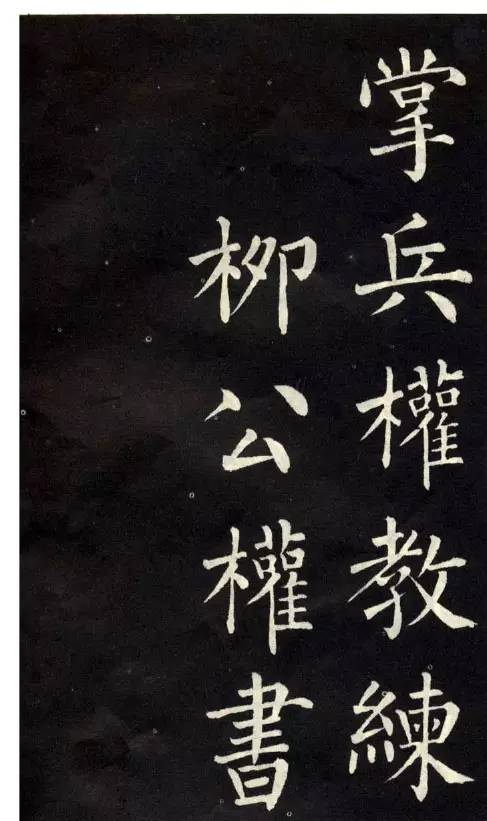 掌兵權教練
柳公權書